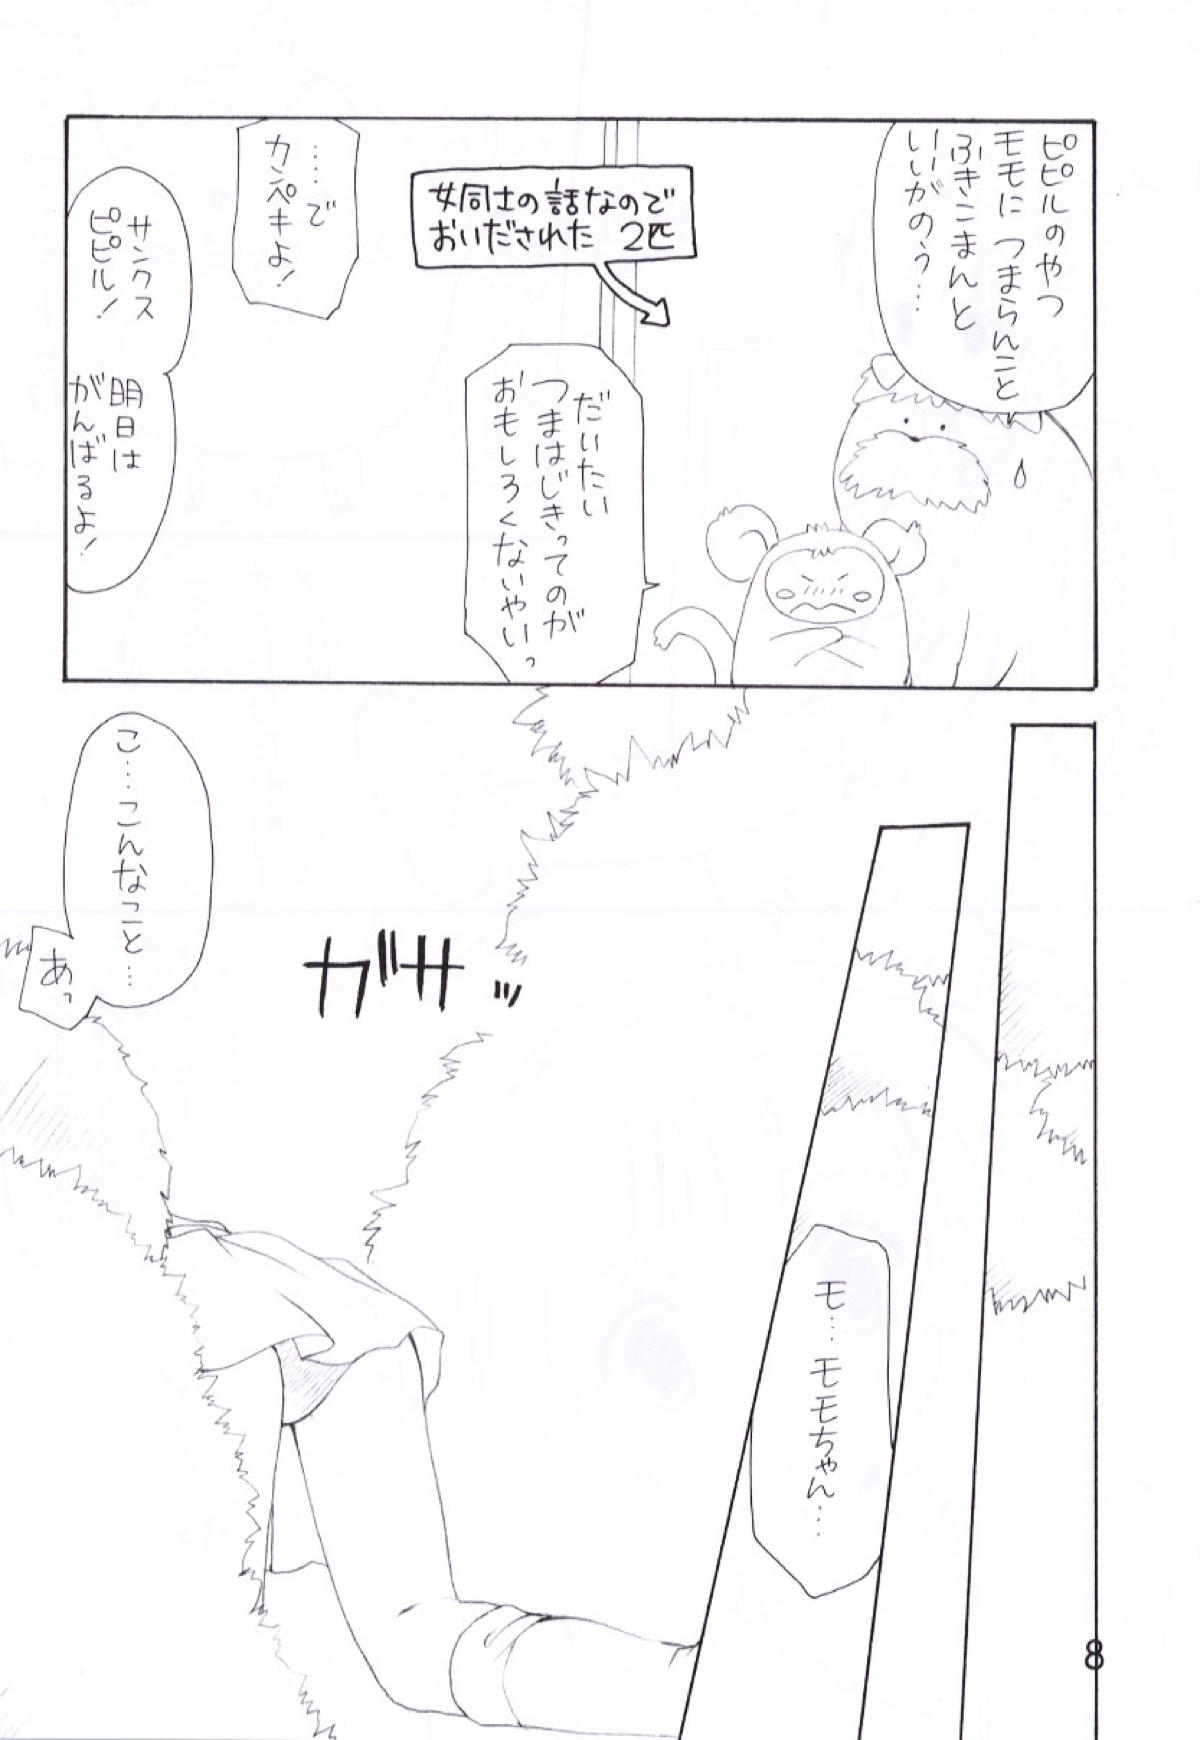 ピピルのやつ
モモに つまらんこと
ふきこまんと
いいがのう…
女同士の話なので
おいだされた 2匹
だいたい
つまはじきってのが
おもしろくないやいっ
……で
カンペキよ！
サンクス
ピピル！
明日は
がんばるよ！
ガサッ
モ…モモちゃん…
こ…こんなこと…
あっ
8